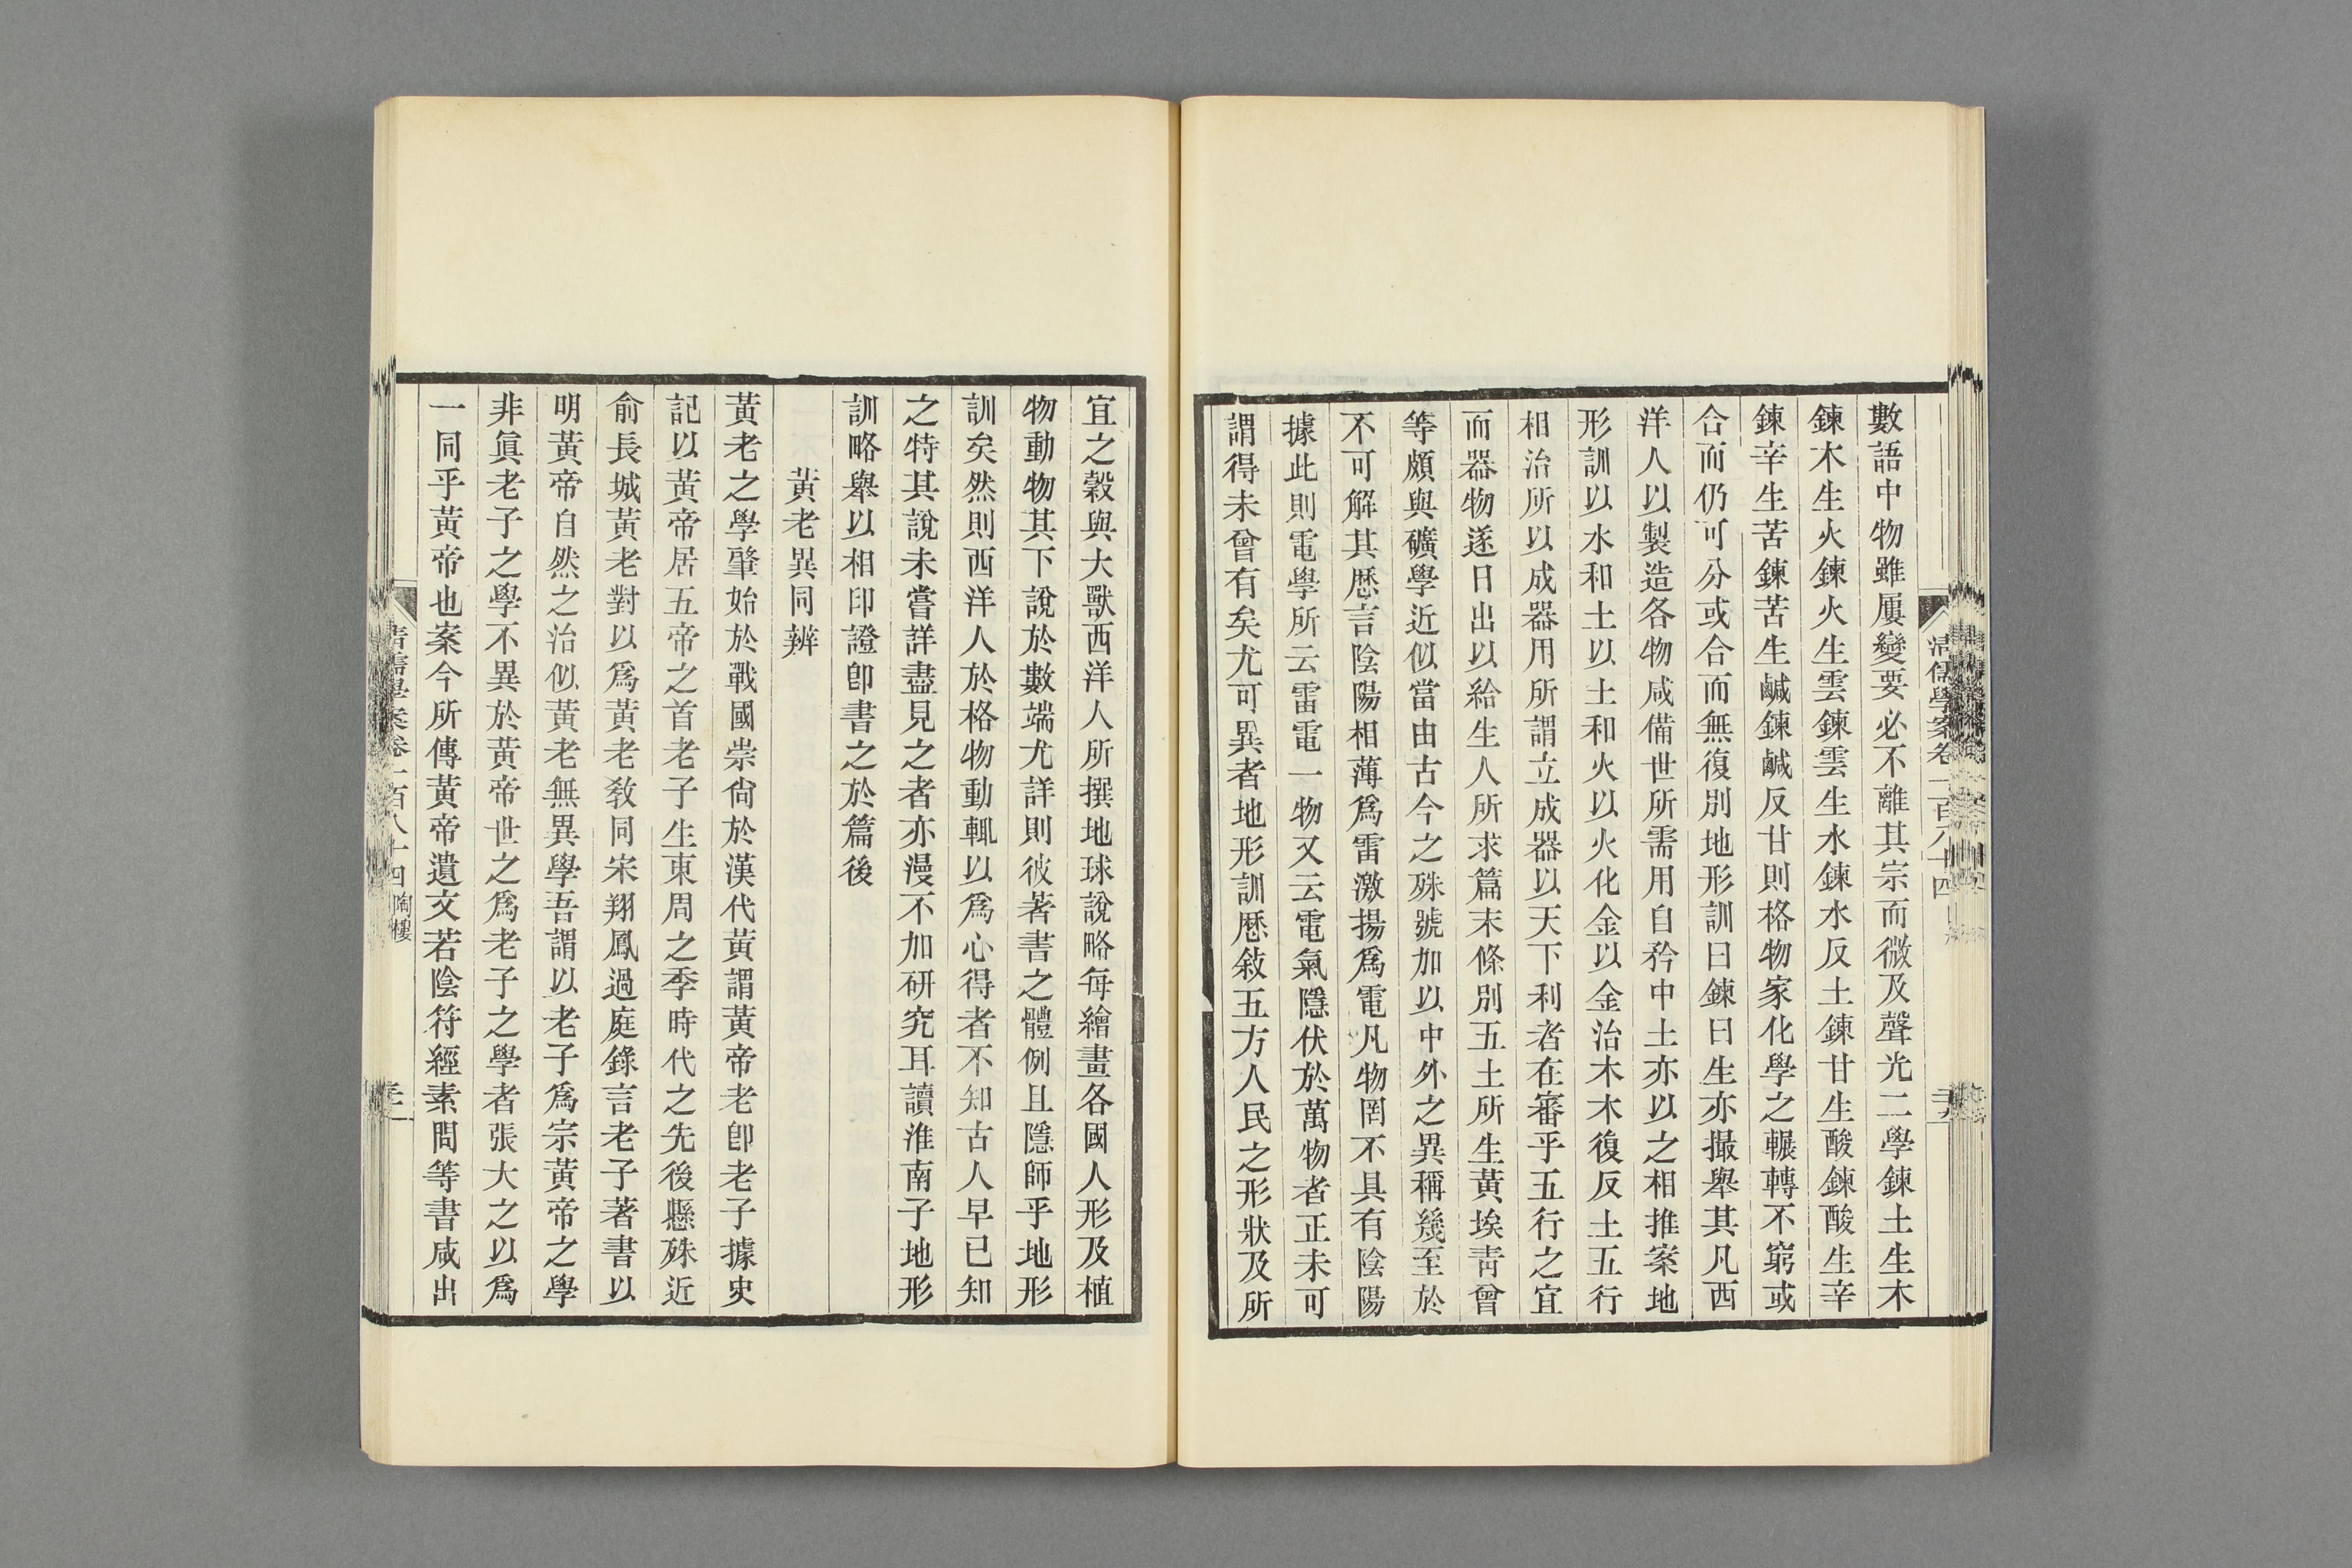 數語中物雖屢變要必不離其宗而微及聲光二學鍊土生木
鍊木生火鍊火生雲鍊雲生水鍊水反土鍊甘生酸鍊酸生辛
鍊辛生苦鍊苦生鹹鍊鹹反甘則格物家化學之輾轉不窮或
合而仍可分或合而無復別地形訓曰鍊曰生亦撮舉其凡西
洋人以製造各物咸備世所需用自矜中土亦以之相推案地
形訓以水和土以土和火以火化金以金治木木復反土五行
相治所以成器用所謂立成器以天下利者在審乎五行之宜
而器物遂日出以給生人所求篇末條別五土所生黃埃靑曾
等頗與礦學近似當由古今之殊號加以中外之異稱幾至於
不可解其厯言陰陽相薄爲雷激揚爲電凡物罔不具有陰陽
據此則電學所云雷電一物又云電氣隱伏於萬物者正未可
謂得未曾有矣尤可異者地形訓厯敍五方人民之形狀及所
宜之穀與大獸西洋人所撰地球說略每繪畫各國人形及植
物動物其下說於數端尤詳則彼著書之體例且隱師乎地形
訓矣然則西洋人於格物動輒以爲心得者不知古人早已知
之特其說未嘗詳盡見之者亦漫不加研究耳讀淮南子地形
訓略舉以相印證卽書之於篇後
黃老異同辨
黃老之學肇始於戰國崇尙於漢代黃謂黃帝老卽老子據史
記以黃帝居五帝之首老子生東周之季時代之先後懸殊近
俞長城黃老對以爲黃老敎同宋翔鳳過庭錄言老子著書以
明黃帝自然之治似黃老無異學吾謂以老子爲宗黃帝之學
非眞老子之學不異於黃帝世之爲老子之學者張大之以爲
一同乎黃帝也案今所傳黃帝遺文若陰符經素問等書咸出
淸儒學案卷一百八十四 陶樓